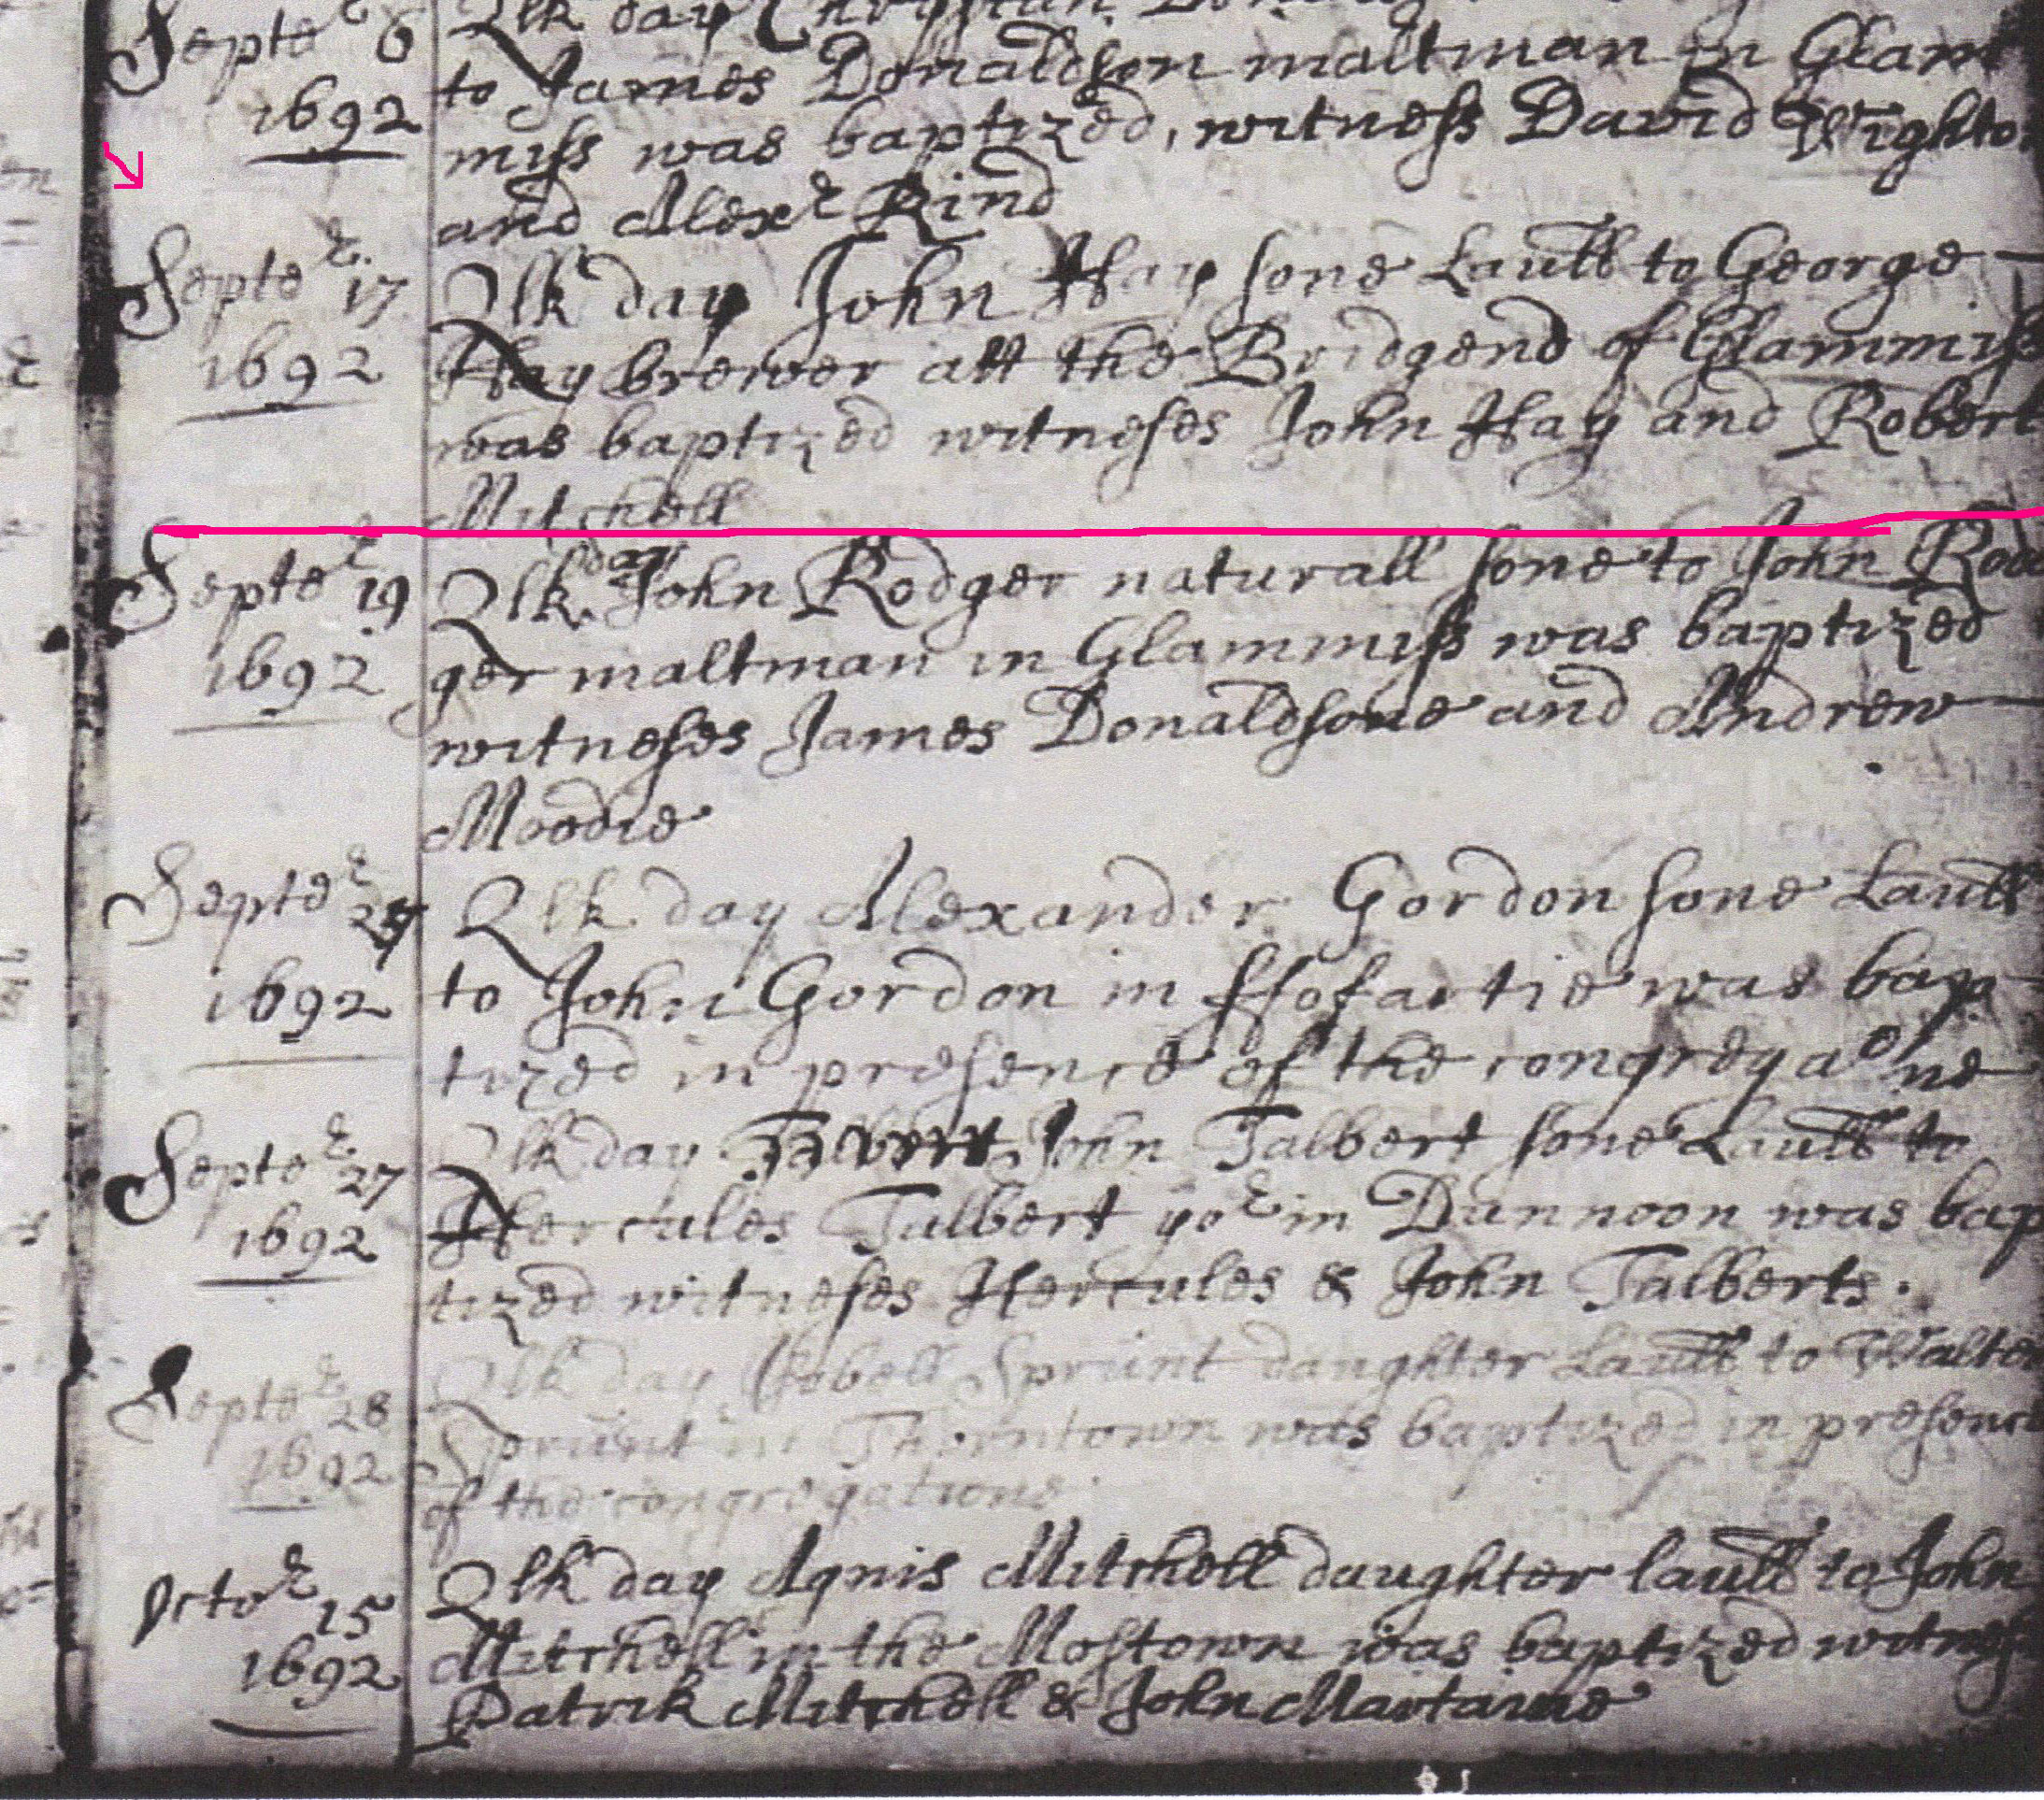 Septer 6 Qlk day Chrystian
1692 to James Donaldson maltman in Glam
miss was baptized, witness David Wighto
and Alexr Rind
Septer 17 Qlk day John Hay sone Laull to George
1692 Hay brewer att the Bridgend of Glammiss
was baptized witneses John Hay and Robert
Mitchell
Septer 19 Qlk day John Rodger naturall sone to John Rod
1692 ger maltman in Glammiss was baptized
witneses James Donaldsone and Andrew
Moodie
Septer Qlk day Alexander Gordon sone Laull
1692 to John Gordon in ffofartie was bap
tized in presence of the congregaone
Septer 27 Qlk day John Talbert sone Laull to
1692 Hercules Talbert yor in Dunnoon was bap
tized witneses Hercules & John Talberts.
Septer 28 Qlk day Isobell Sprunt daughter Laull to Walter
1692 Sprunt in Thorntown was baptized in presence
of the congregatione
Octor 15 Qlk day Agnis Mitchell daughter laull to John
1692 Mitchell in the Mostown was baptized witness
Patrik Mitchell & John Martaine